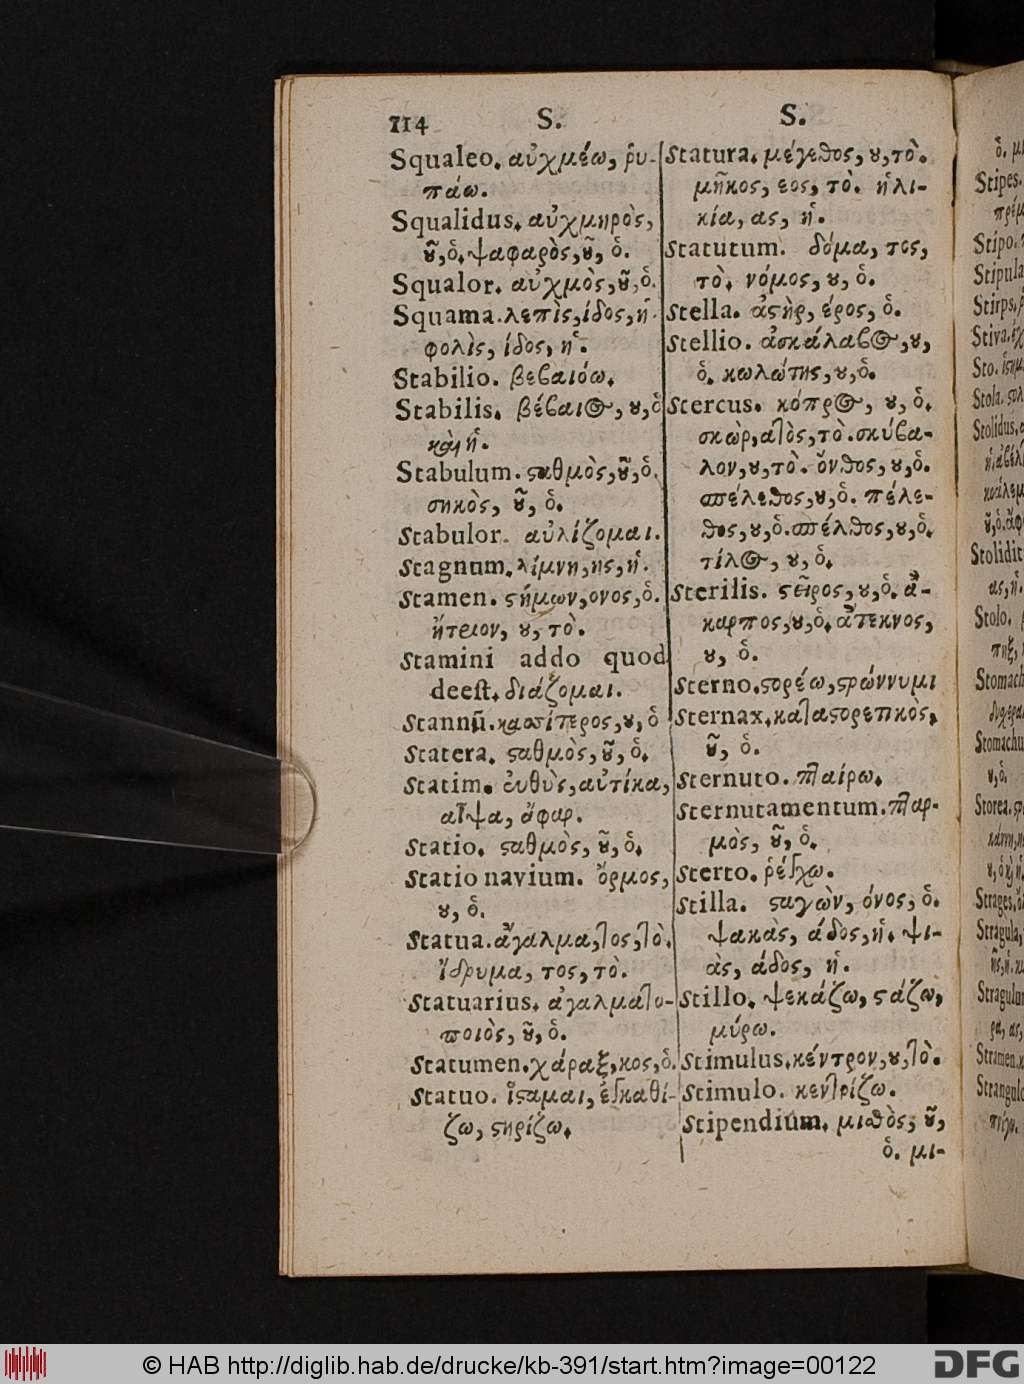 714 S. S.
Squaleo. αὐχμέω, ῥυ-
πάω.
Squalidus. αὐχμηρὸς,
ȣ͂, ὁ. ψαφαρὸς, ȣ͂, ὁ.
Squalor. αὐχμὸς, ȣ͂, ὁ.
Squama. λεπὶς, ίδος, ἡ.
φολὶς, ίδος, ἡ.
Stabilio. βεβαιόω.
Stabilis. βέβαιος, ȣ, ὁ
καὶ ἡ.
Stabulum. ϛαθμὸς, ȣ͂, ὁ.
σηκὸς, ȣ͂, ὁ.
Stabulor. αὐλίζομαι.
Stagnum. λίμνη, ης, ἡ.
Stamen. ϛήμων, ονος, ὁ.
ἤτριον, ȣ, τὸ.
Stamini addo quod
deest. διάζομαι.
Stannū. κασσίτερος, ȣ, ὁ
Statera. ϛαθμὸς, ȣ͂, ὁ.
Statim. εὐθὺς, αὐτίκα,
αἶψα, ἄφαρ.
Statio. ϛαθμὸς, ȣ͂, ὁ.
Statio navium. ὅρμος,
ȣ, ὁ.
Statua. ἄγαλμα, τος, τὸ.
ἵδρυμα, τος, τὸ.
Statuarius. ἀγαλματο-
ποιὸς, ȣ͂, ὁ.
Statumen. χάραξ, κος, ὁ.
Statuo. ἵϛαμαι, ἐγκαθί-
ζω, ϛηρίζω.
Statura. μέγεθος, ȣ, τὸ.
μῆκος, εος, τὸ. ἡλι-
κία, ας, ἡ.
Statutum. δόμα, τος,
τὸ. νόμος, ȣ, ὁ.
Stella. ἀϛὴρ, έρος, ὁ.
Stellio. ἀσκάλαβος, ȣ,
ὁ. κωλώτης, ȣ, ὁ.
Stercus. κόπρος, ȣ, ὁ.
σκὼρ, ατὸς, τὸ. σκύβα-
λον, ȣ, τὸ. ὄνθος, ȣ, ὁ.
σπέλεθος, ȣ, ὁ. πέλε-
θος, ȣ, ὁ. σπέλθος, ȣ, ὁ.
τίλος, ȣ, ὁ.
Sterilis. ϛεῖρος, ȣ, ὁ. ἄ-
καρπος, ȣ, ὁ. ἄτεκνος,
ȣ, ὁ.
Sterno. ϛορέω, ϛρώννυμι
Sternax. καταϛορεπικὸς,
ȣ͂, ὁ.
Sternuto. πταίρω.
Sternutamentum. πταρ-
μὸς, ȣ͂, ὁ.
Sterto. ῥέγχω.
Stilla. ϛαγὼν, όνος, ὁ.
ψακὰς, άδος, ἡ. ψι-
ὰς, άδος, ἡ.
Stillo. ψεκάζω, ϛάζω,
μύρω.
Stimulus. κέντρον, ȣ, τὸ.
Stimulo. κεντρίζω.
Stipendium. μιθὸς, ȣ͂,
ὁ. μι-
Stipes.
Stipo.
Stipula
Stirps.
Stiva.
Sto.
Stola.
Stolidus.
Stolidit
ας, ἡ.
Stolo.
Stomach
Stomachu
ȣ, ὁ.
Storea.
Strages.
Stragula,
Stragulum
Stramen.
Strangulo
© HAB http://diglib.hab.de/drucke/kb-391/start.htm?image=00122
DFG